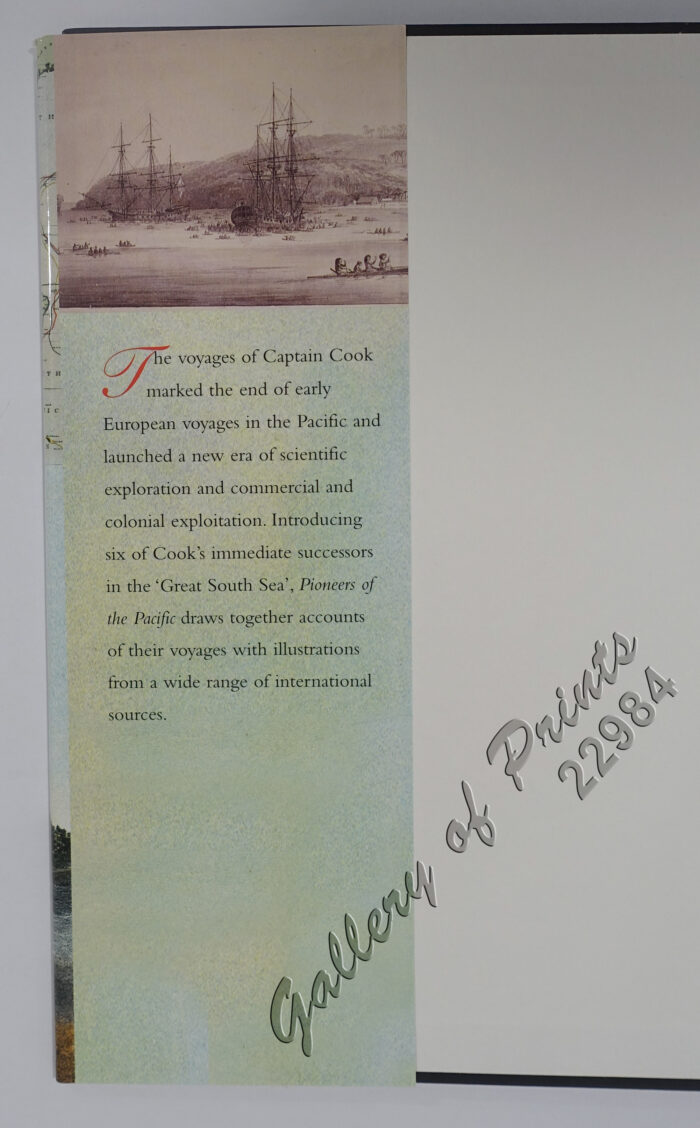 The voyages of Captain Cook
marked the end of early
European voyages in the Pacific and
launched a new era of scientific
exploration and commercial and
colonial exploitation. Introducing
six of Cook's immediate successors
in the ‘Great South Sea’, Pioneers of
the Pacific draws together accounts
of their voyages with illustrations
from a wide range of international
sources.
Gallery of Prints
22984